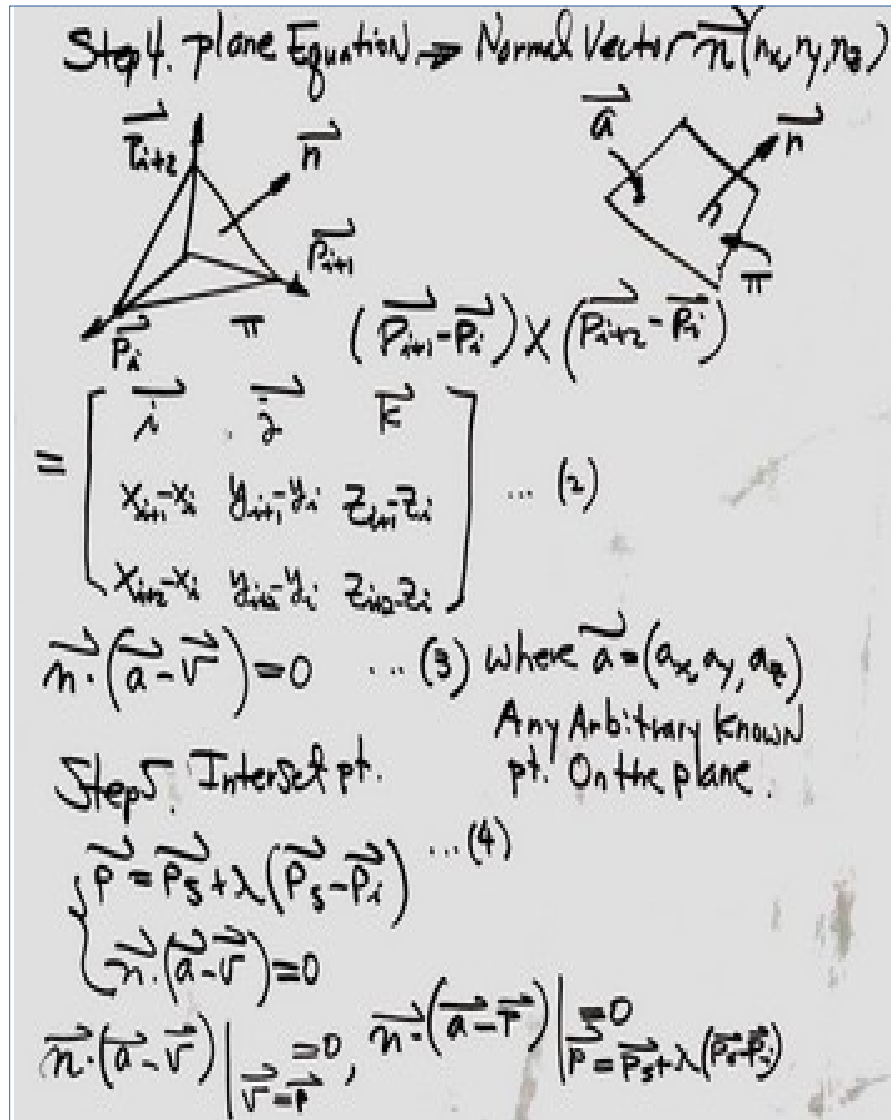 Step 4. plane Equation → Normal Vector n⃗(nx, ny, nz)
P⃗i+2 n⃗ a⃗ n⃗
P⃗i+1
P⃗i π π
(P⃗i+1 - P⃗i) × (P⃗i+2 - P⃗i)
= [ i⃗ j⃗ k⃗
xi+1-xi yi+1-yi zi+1-zi ... (2)
xi+2-xi yi+2-yi zi+2-zi ]
n⃗·(a⃗-v⃗)=0 ... (3) where a⃗=(ax, ay, az)
Any Arbitrary Known
pt. On the plane.
Step 5. Interset pt.
P⃗ = P⃗s+λ(P⃗s-P⃗i) ...(4)
n⃗·(a⃗-v⃗)=0
n⃗·(a⃗-v⃗)|v⃗=P⃗ =0, n⃗·(a⃗-P⃗)|P⃗=P⃗s+λ(P⃗s-P⃗i) =0